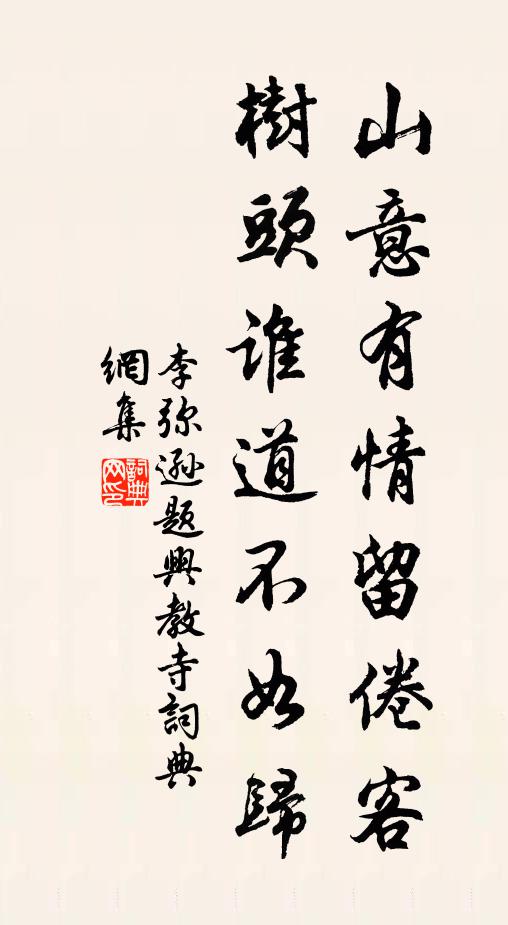 山意有情留倦客
樹頭誰道不如歸
李弥遜題興教寺詞典
網集
詞典網印